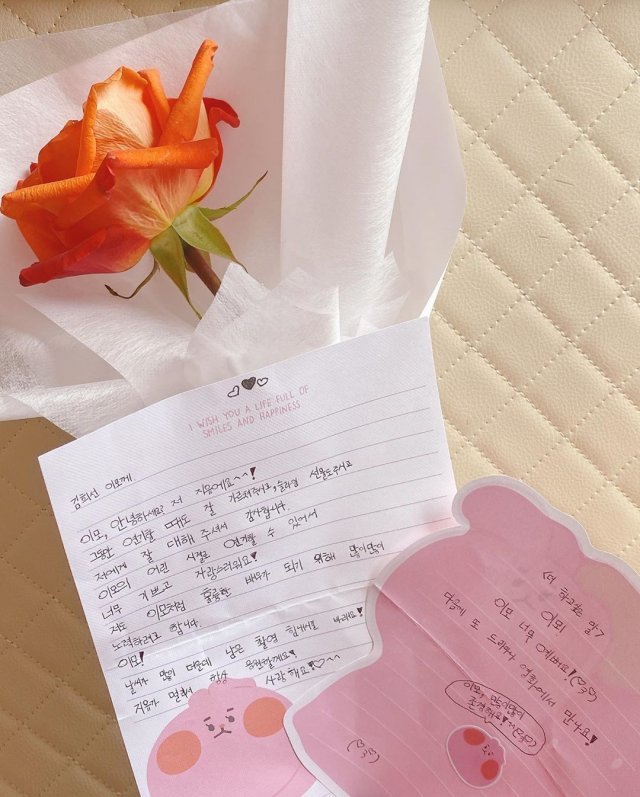 I WISH YOU A LIFE FULL OF
SMILES AND HAPPINESS
김희선 이모께.
이모, 안녕하세요? 저 지유에요~^!
그동안 연기할 때도 잘 가르쳐주시고, 슬라임 선물도주시고
저에게 잘 대해 주셔서 감사합니다.
이모의 어린 시절로 연기할 수 있어서
너무 기쁘고 자랑스러워요!
저도 이모처럼 훌륭한 배우가 되기 위해 많이많이
노력하려고 합니다.
이모!
날씨가 많이 더운데 남은 촬영 힘내시길 바래요!
지유가 멀리서 항상 응원할게요!
사랑해요!♡~^
<더 하고싶은 말>
이모!
이모 너무 예뻐요!
다음에 또 드라마나 영화에서 만나요!
이모, 많이많이
존경해요!